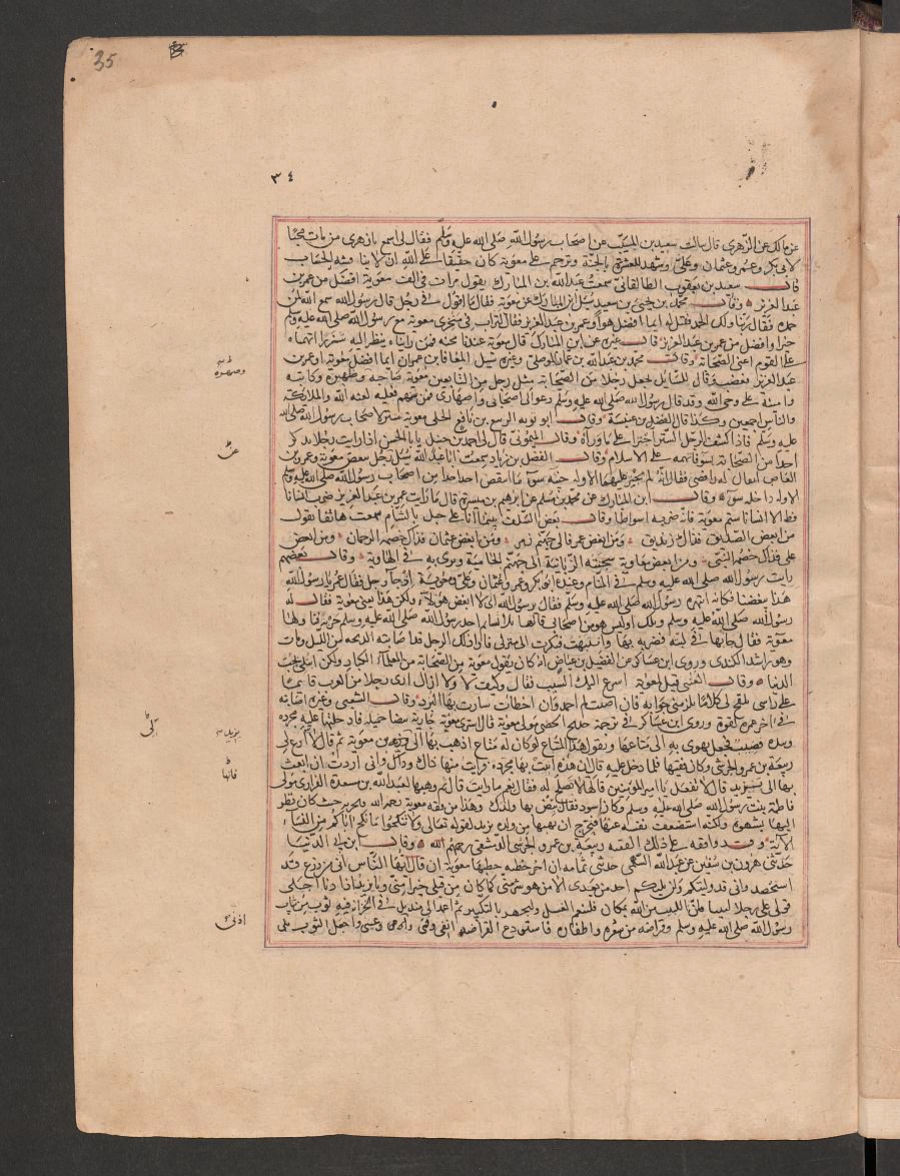 35
٣٤
عن مالك عن الزهري قال سألت سعيد بن المسيب عن اصحاب رسول الله صلى الله عليه وسلم فقال لي اسمع يا زهري من مات محبا
لابي بكر وعمر وعثمان وعلي وشهد للعشرة بالجنة وترحم على معوية كان حقيقا على الله ان لا يناقشه الحساب
قال سعيد بن يعقوب الطالقاني سمعت عبد الله بن المبارك يقول تراب في انف معوية افضل من عمر بن
عبد العزيز وقال محمد بن يحيى بن سعيد سئل ابن المبارك عن معوية فقال ما اقول في رجل قال رسول الله سمع الله لمن
حمده فقال ربنا ولك الحمد فقيل له ايما افضل هو او عمر بن عبد العزيز فقال لتراب في منخري معوية مع رسول الله صلى الله عليه وسلم
خير وافضل من عمر بن عبد العزيز قال غيره عن ابن المبارك قال معوية عندنا محنة فمن رايناه ينظر اليه شزرا اتهمناه
على القوم اعني الصحابة وقال محمد بن عبد الله بن عمار الموصلي وغيره سئل المعافا بن عمران ايما افضل معوية او عمر بن
عبد العزيز فغضب وقال للسائل تجعل رجلا من الصحابة مثل رجل من التابعين معوية صاحبه وصهره وكاتبه
وامينه على وحي الله وقد قال رسول الله صلى الله عليه وسلم دعوا لي اصحابي واصهاري فمن سبهم فعليه لعنة الله والملائكة
والناس اجمعين وكذا قال الفضل بن عنبسة وقال ابو توبة الربيع بن نافع الحلبي معوية ستر لاصحاب رسول الله صلى الله
عليه وسلم فاذا كشف الرجل الستر اجترا على ما وراه وقال الميموني قال لي احمد بن حنبل يا ابا الحسن اذا رايت رجلا يذكر
احدا من الصحابة بسوء فاتهمه على الاسلام وقال الفضل بن زياد سمعت ابا عبد الله سئل عن رجل تنقص معوية وعمرو بن
العاص ايقال له رافضي فقال انه لم يجتر عليهما الا وله خبيئة سوء ما انتقص احد احدا من اصحاب رسول الله صلى الله عليه وسلم
الا وله داخلة سوء وقال ابن المبارك عن محمد بن مسلم عن ابرهيم بن ميسرة قال ما رايت عمر بن عبد العزيز ضرب انسانا
قط الا انسانا شتم معوية فانه ضربه اسواطا وقال بعض السلف بينما انا على جبل بالشام سمعت هاتفا يقول
من ابغض الصديق فذاك زنديق ومن ابغض عمر فالى جهنم زمر ومن ابغض عثمان فذاك خصمه الرحمان ومن ابغض
علي فذاك خصمه النبي ومن ابغض معاوية سحبته الزبانية الى جهنم الحامية ويرمى به في الهاوية وقال بعضهم
رايت رسول الله صلى الله عليه وسلم في المنام وعنده ابو بكر وعمر وعثمان وعلي ومعوية اذ جآ رجل فقال عمر يا رسول الله
هذا يبغضنا فكانه انتهره رسول الله صلى الله عليه وسلم فقال يرسول الله اني لا ابغض هؤلاء ولكن هذا يعني معوية فقال له
رسول الله صلى الله عليه وسلم ويلك اوليس هو من اصحابي قالها ثلاثا ثم اخذ رسول الله صلى الله عليه وسلم حربة فناولها
معوية فقال جابها في لبته فضربه بها وانتبهت فبكرت الى منزلي فاذا ذلك الرجل قد اصابته الذبحة من الليل ومات
وهو راشد الكندي وروى ابن عساكر عن الفضيل بن عياض انه كان يقول معوية من الصحابة من العلماء الكبار ولكن ابتلي بحب
الدنيا وقال العتبي قيل لمعوية اسرع اليك الشيب فقال وكيف لا ولا ازال ارى رجلا من العرب قائما
على راسي يلقح لي كلاما يلزمني جوابه فان اصبت لم احمد وان اخطات سارت بها البرد وقال الشعبي وغيره اصابته
في اخر عمره لقوة وروى ابن عساكر في ترجمة خديج الخصي مولى معوية قال اشترى معوية جارية بيضا جميلة فادخلتها عليه مجردة
وبيده قضيب فجعل يهوي به الى متاعها ويقول هذا المتاع لو كان له متاع اذهب بها الى يزيد بن معوية ثم قال لا ادع لي
ربيعة بن عمرو الجرشي وكان فقيها فلما دخل عليه قال ان هذه اتيت بها مجردة فرايت منها ذاك وذاك واني اردت ان ابعث
بها الى يزيد قال لا تفعل يا امير المومنين فانها لا تصلح له فقال نعم ما رايت قال ثم وهبها لعبد الله بن مسعدة الفزاري مولى
فاطمة بنت رسول الله صلى الله عليه وسلم وكان اسود فقال بيض بها ولدك وهذا من فقه معوية رحمه الله وتحريه حيث كان نظر
اليها بشهوة ولكنه استضعف نفسه عنها فتحرج ان يهبها من ولده يزيد لقوله تعالى ولا تنكحوا ما نكح اباكم من النساء
الاية وقد وافقه على ذلك الفقيه ربيعة بن عمرو الجرشي الدمشقي رحمهم الله وقال ابن ابي الدنيا
حدثني هرون بن سفين عن عبد الله السهمي حدثني ثمامة ان اخر خطبة خطبها معوية ان قال ايها الناس اني من زرع قد
استحصد واني قد وليتكم ولن يليكم احد من بعدي الا من هو شر مني كما كان من قبلي خيرا مني ويا يزيد اذا دنا اجلي
فولي غسلي رجلا لبيبا فان اللبيب من الله بمكان فلينعم الغسل وليجهر بالتكبير ثم اعمد الى منديل في الخزانة فيه ثوب من ثياب
رسول الله صلى الله عليه وسلم وقراضة من شعره واظفاره فاستودع القراضة انفي وفمي واذني وعيني واجعل الثوب على
وصهره
يزيد
فانها
اذني